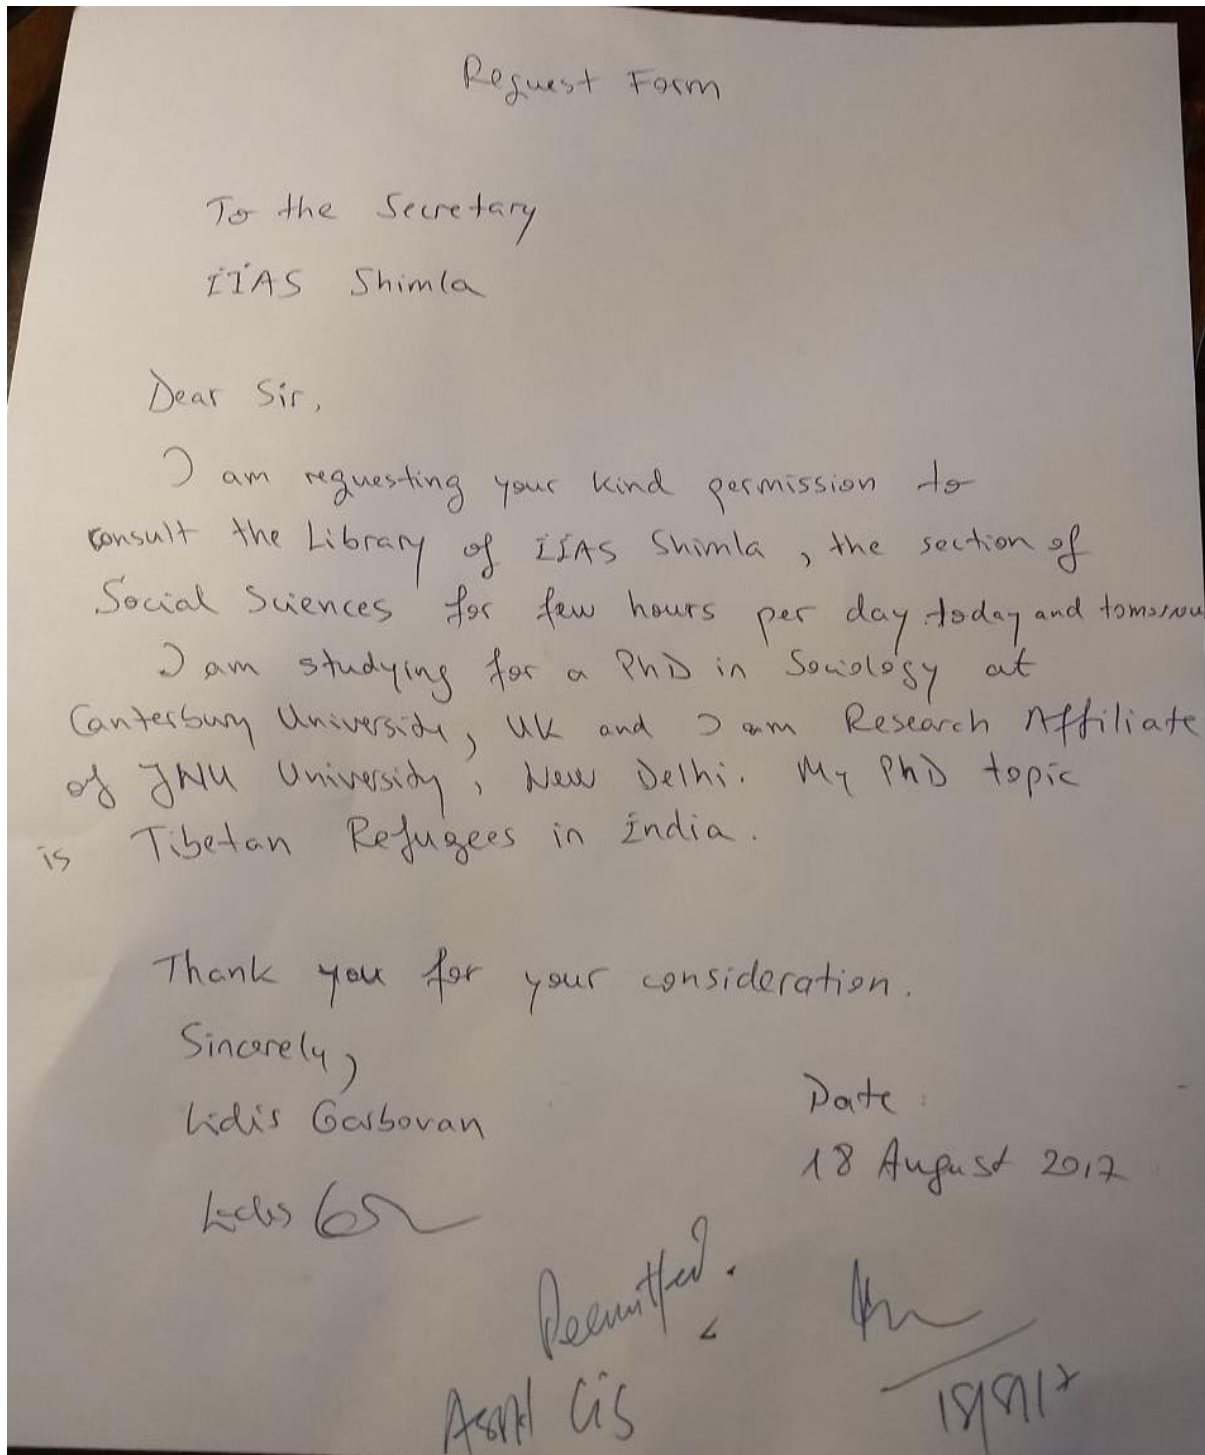 Request Form
To the Secretary
IIAS Shimla
Dear Sir,
I am requesting your kind permission to
consult the Library of IIAS Shimla, the section of
Social Sciences for few hours per day today and tomorrow
I am studying for a PhD in Sociology at
Canterbury University, UK and I am Research Affiliate
of JNU University, New Delhi. My PhD topic
is Tibetan Refugees in India.
Thank you for your consideration.
Sincerely,
Lidis Garbovan
Date:
18 August 2017
Permitted.
18/8/17